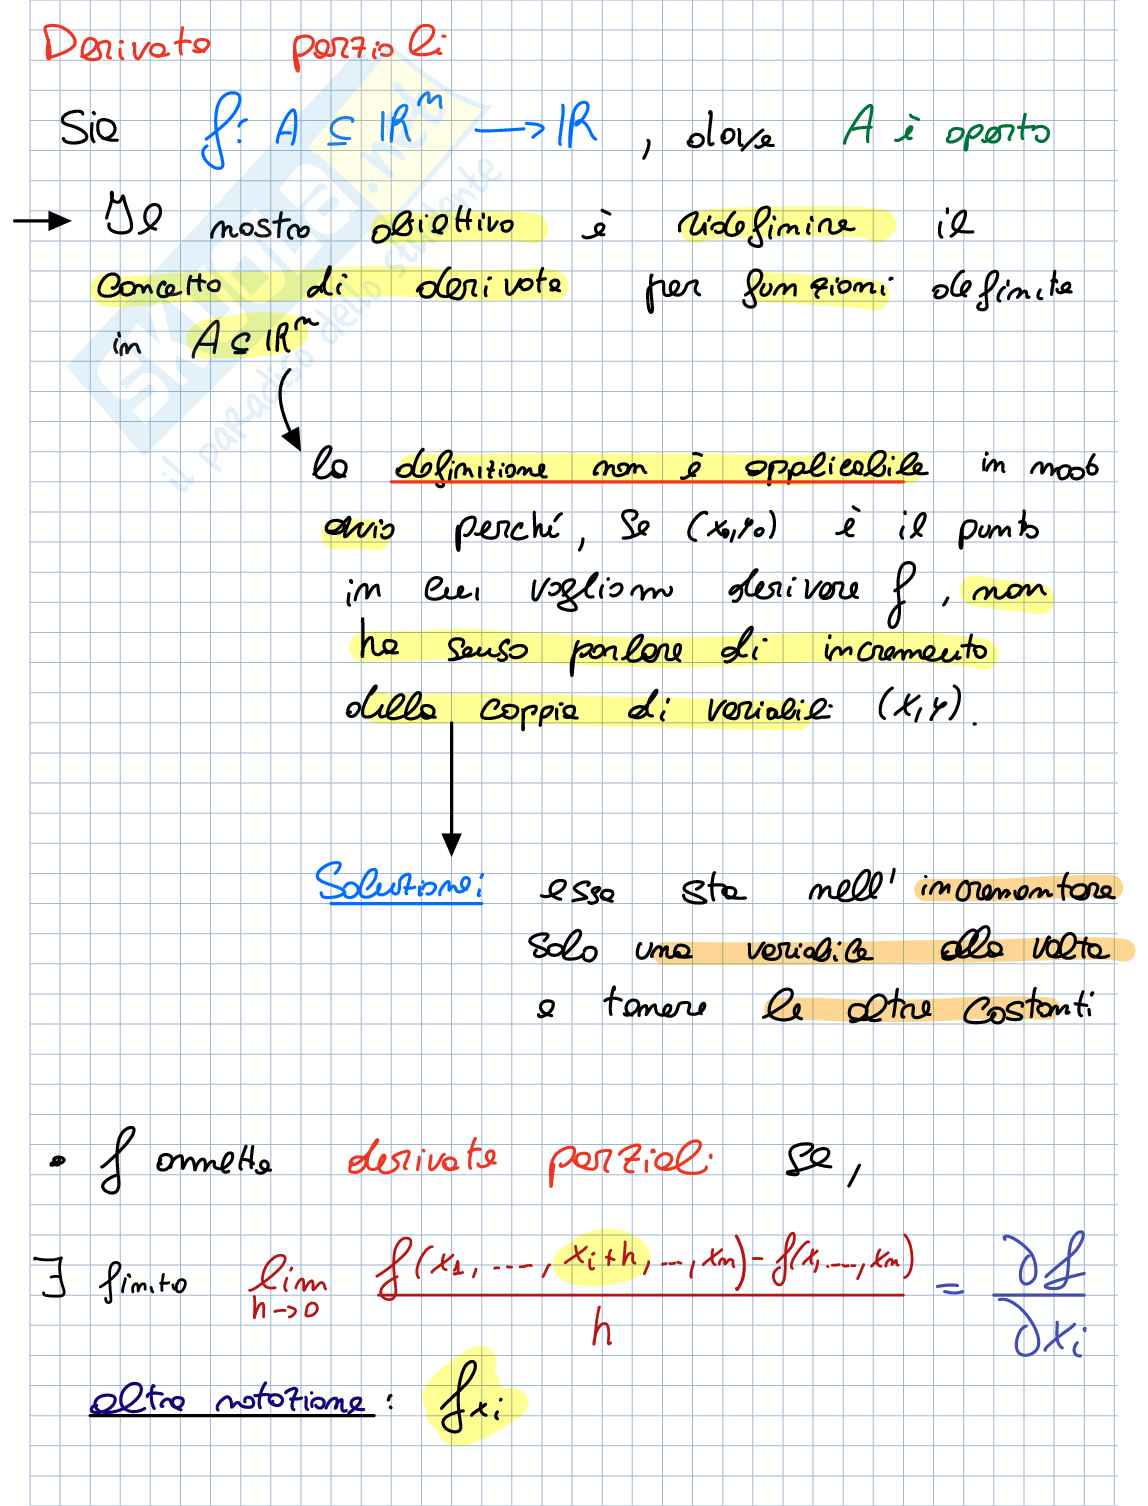 Derivate parziali
Sia f: A ⊆ ℝⁿ → ℝ , dove A è aperto
→ Il nostro obiettivo è ridefinire il
concetto di derivata per funzioni definite
in A ⊆ ℝⁿ
la definizione non è applicabile in modo
ovvio perché, se (x₀,y₀) è il punto
in cui vogliamo derivare f, non
ha senso parlare di incremento
della coppia di variabili (x,y).
Soluzione: essa sta nell'incrementare
solo una variabile alla volta
e tenere le altre costanti
• f ammette derivate parziali se,
∃ finito lim h→0 f(x₁, ..., xᵢ+h, ..., xₙ) - f(x, ..., xₙ) / h = ∂f / ∂xᵢ
altra notazione: f xᵢ
SKUOLA.net
il paradiso dello studente